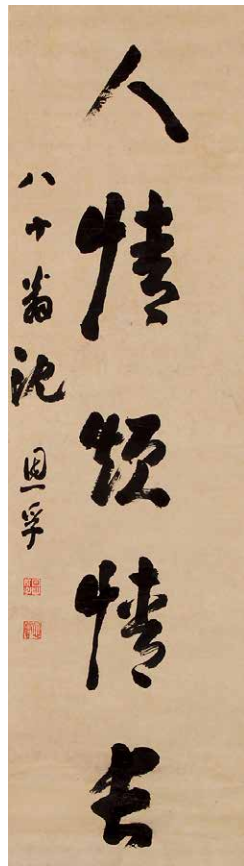 人情情
八十翁沈恩孚